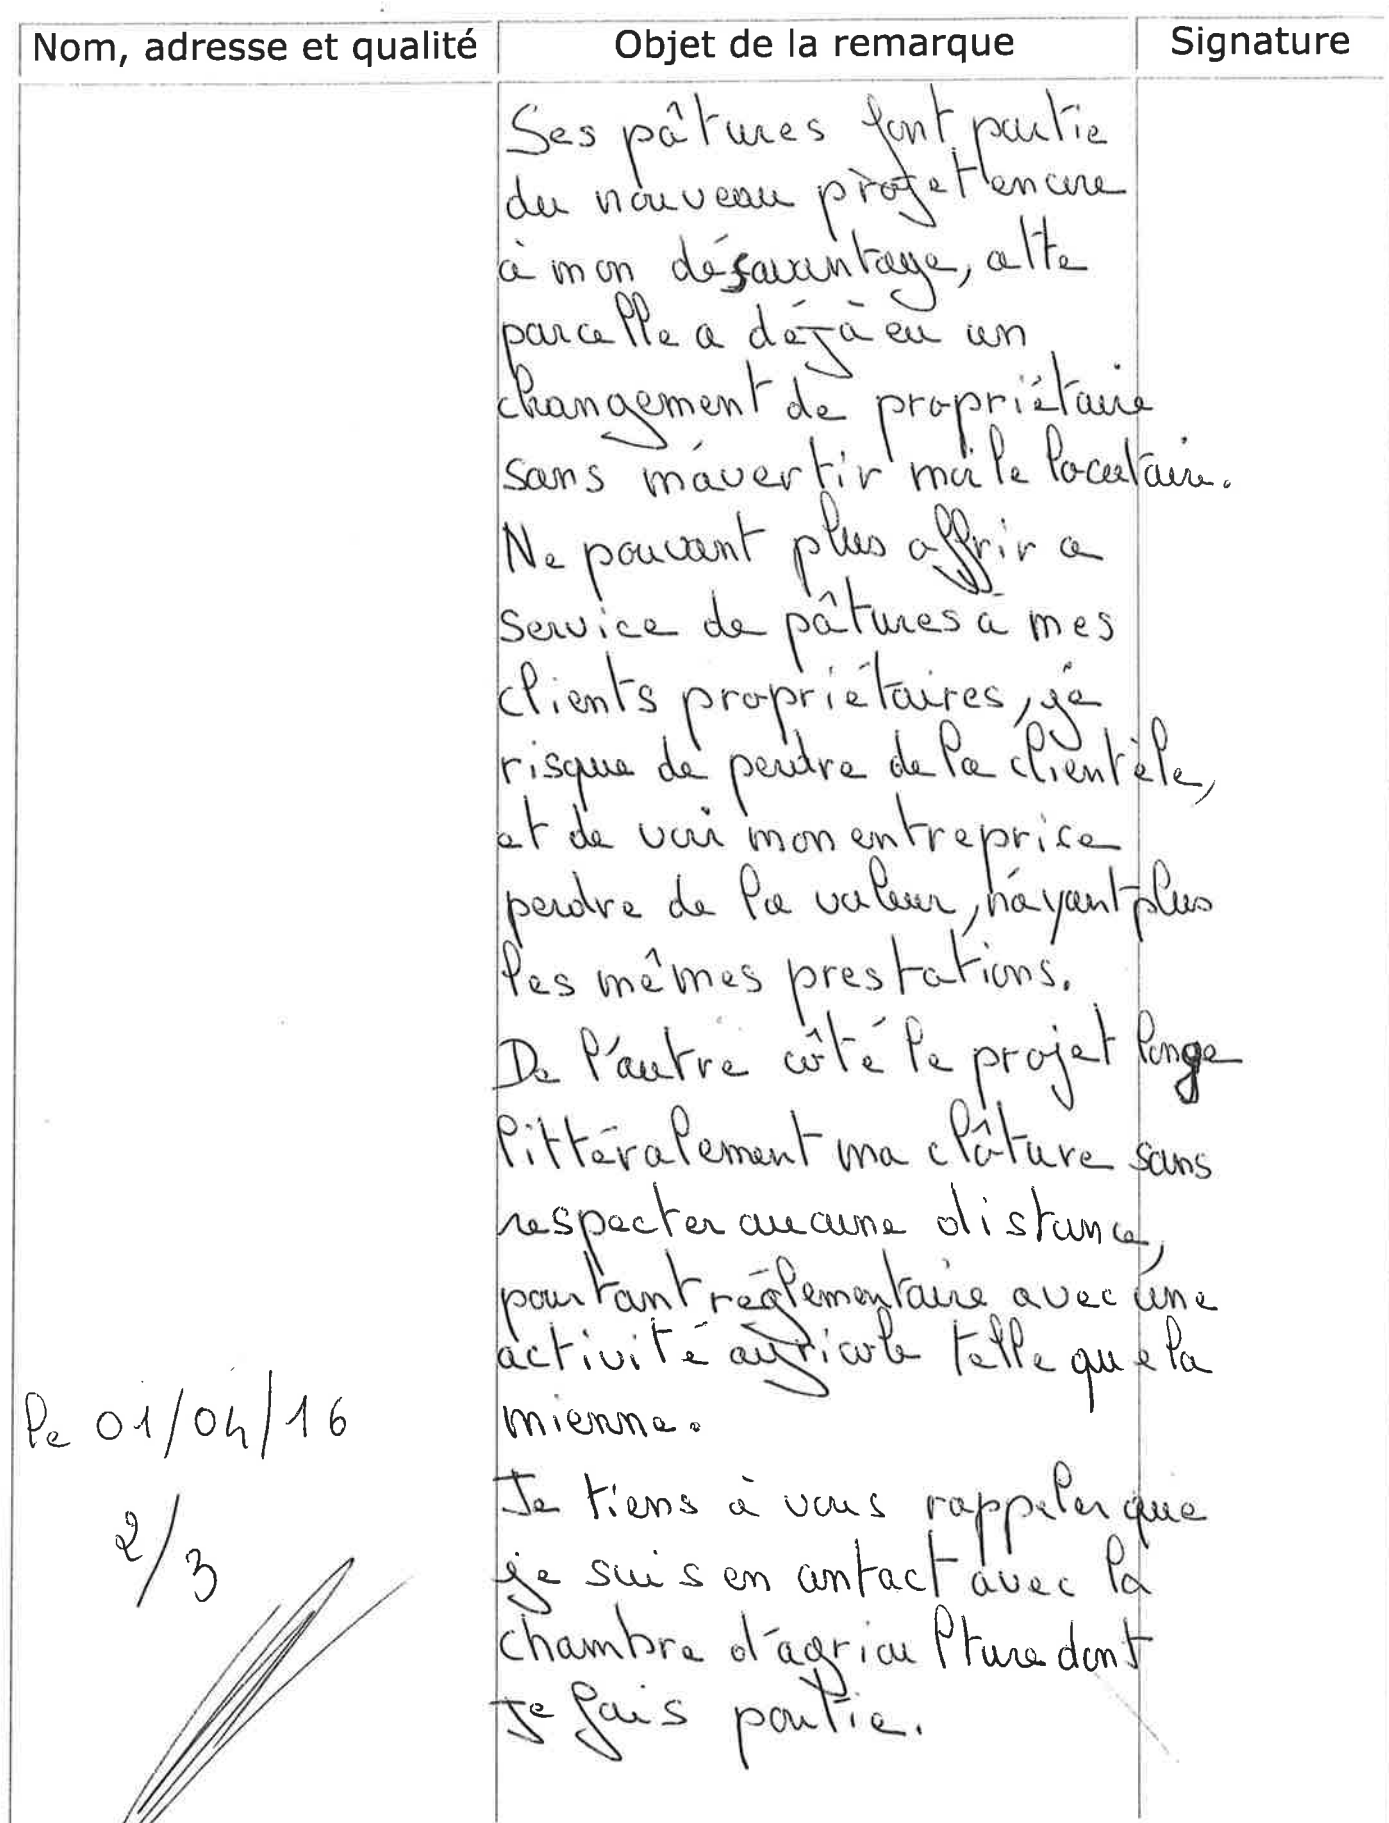 Nom, adresse et qualité
Objet de la remarque
Signature
Ses pâtures font partie
du nouveau projet encore
à mon désavantage, cette
parcelle a déjà eu un
changement de propriétaire
sans m'avertir moi le locataire.
Ne pouvant plus offrir ce
service de pâtures à mes
clients propriétaires, je
risque de perdre de la clientèle,
et de voir mon entreprise
perdre de la valeur, n'ayant plus
les mêmes prestations.
De l'autre côté le projet longe
littéralement ma clôture sans
respecter aucune distance,
pourtant réglementaire avec une
activité agricole telle que la
mienne.
Je tiens à vous rappeler que
je suis en contact avec la
chambre d'agriculture dont
je fais partie.
le 01/04/16
2/3